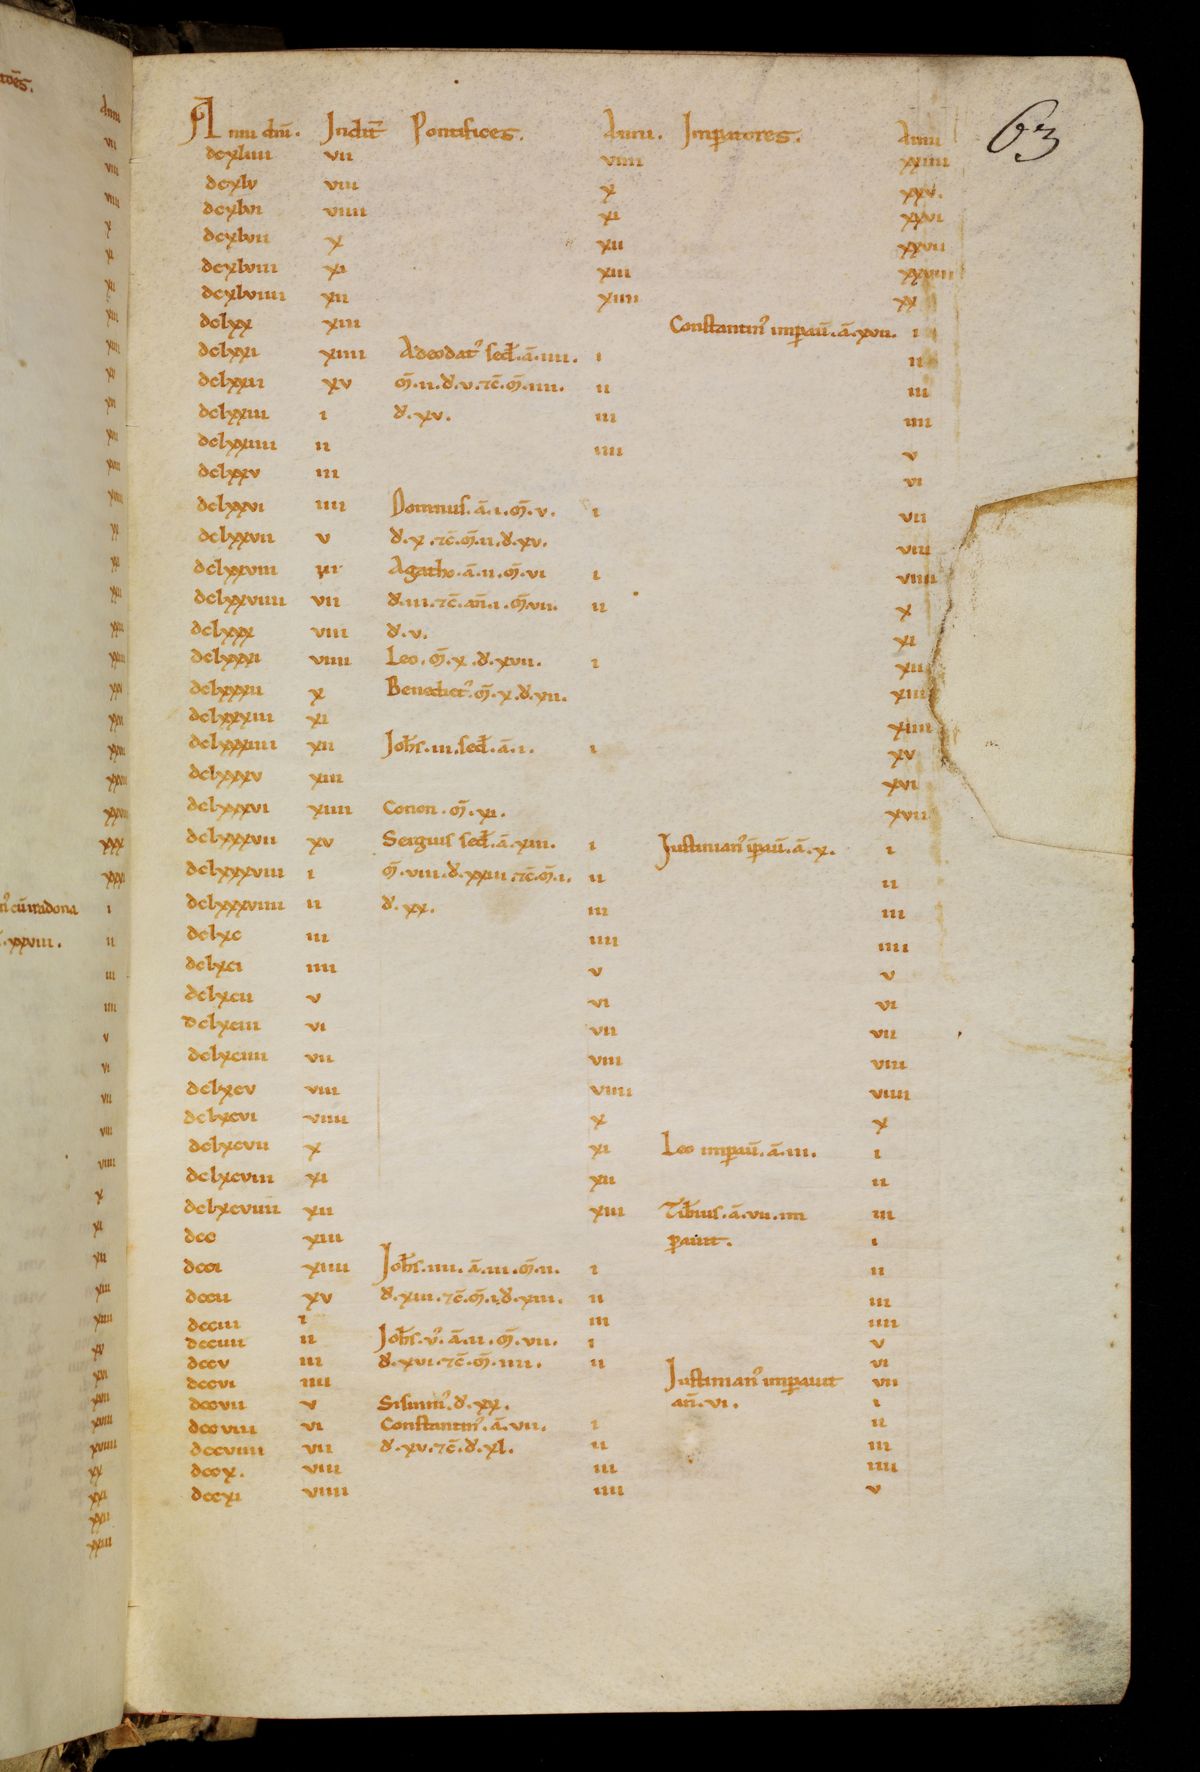 63
Anni dn̄i. Indic̄t Pontifices. Anni. Imperatores. Anni
dcxliiii vii viiii xxiiii
dcxlv viii x xxv.
dcxlvi viiii xi xxvi
dcxlvii x xii xxvii
dcxlviii xi xiii xxviii
dcxlviiii xii xiiii xx
dclxx xiii Constantin᾽ imperau̅. a̅. xvii. i
dclxxi xiiii Adeodat᾽ sed̅. a̅. iiii. i ii
dclxxii xv m̅. ii. d̅. v. ⁊ c̅. m̅. iiii. ii iii
dclxxiii i d̅. xv. iii iiii
dclxxiiii ii iiii v
dclxxv iii vi
dclxxvi iiii Domnus. a̅. i. m̅. v. i vii
dclxxvii v d̅. x. ⁊ c̅. m̅. ii. d̅. xv. viii
dclxxviii vi Agatho. a̅. ii. m̅. vi i viiii
dclxxviiii vii d̅. iii. ⁊ c̅. an̅. i. m̅. vii. ii x
dclxxx viii d̅. v. xi
dclxxxi viiii Leo. m̅. x. d̅. xvii. i xii
dclxxxii x Benedict᾽. m̅. x. d̅. xii. xiii
dclxxxiii xi xiiii
dclxxxiiii xii Joh̅s. iii. sed̅. a̅. i. i xv
dclxxxv xiii xvi
dclxxxvi xiiii Conon. m̅. xi. xvii
dclxxxvii xv Sergius sed̅. a̅. xiii. i Justinian᾽ ip̅au̅. a̅. x. i
dclxxxviii i m̅. viii. d̅. xxiii. ⁊ c̅. m̅. i. ii ii
dclxxxviiii ii d̅. xx. iii iii
dclxc iii iiii iiii
dclxci iiii v v
dclxcii v vi vi
dclxciii vi vii vii
dclxciiii vii viii viii
dclxcv viii viiii viiii
dclxcvi viiii x x
dclxcvii x xi Leo imperau̅. a̅. iii. i
dclxcviii xi xii ii
dclxcviiii xii xiii Tib̅ius. a̅. vii. im iii
dcc xiii perauit. i
dcci xiiii Joh̅s. iiii. a̅. iii. m̅. ii. i ii
dccii xv d̅. xiii. ⁊ c̅. m̅. i. d̅. xiii. ii iii
dcciii i iii iiii
dcciiii ii Joh̅s. v᾽. a̅. ii. m̅. vii. i v
dccv iii d̅. xvi. ⁊ c̅. m̅. iiii. ii vi
dccvi iiii Justinian᾽ imperauit vii
dccvii v Sisinni᾽. d̅. xx. an̅. vi. i
dccviii vi Constantin᾽. a̅. vii. i ii
dccviiii vii d̅. xv. ⁊ c̅. d̅. xl. ii iii
dccx. viii iii iiii
dccxi viiii iiii v